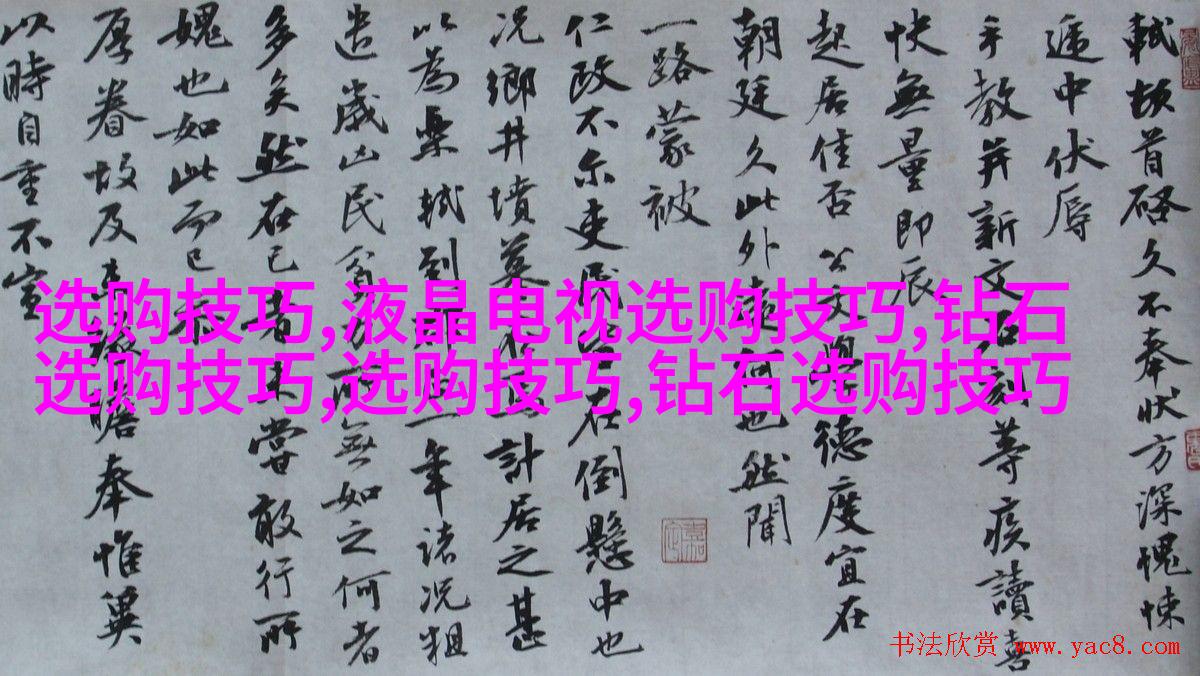 軾頓首啓久不奉狀方深愧悚
遞中伏辱
手教并新文石刻等疾讀喜
快無量即辰
起居佳否公文學德度宜在
朝廷久此外
何也然聞
一路蒙被
仁政不尔吏民
在倒懸中也
况鄉井墳墓
計居之甚
以為樂軾到
一年諸况粗
遣歲凶民貧
無如之何者
多矣然在己者未嘗敢行所
媿也如此而已
厚眷故及
奉惟冀
以時自重不宣
选购技巧,液晶电视选购技巧,钻石
选购技巧,选购技巧,钻石选购技巧
书法欣赏 www.yac8.com